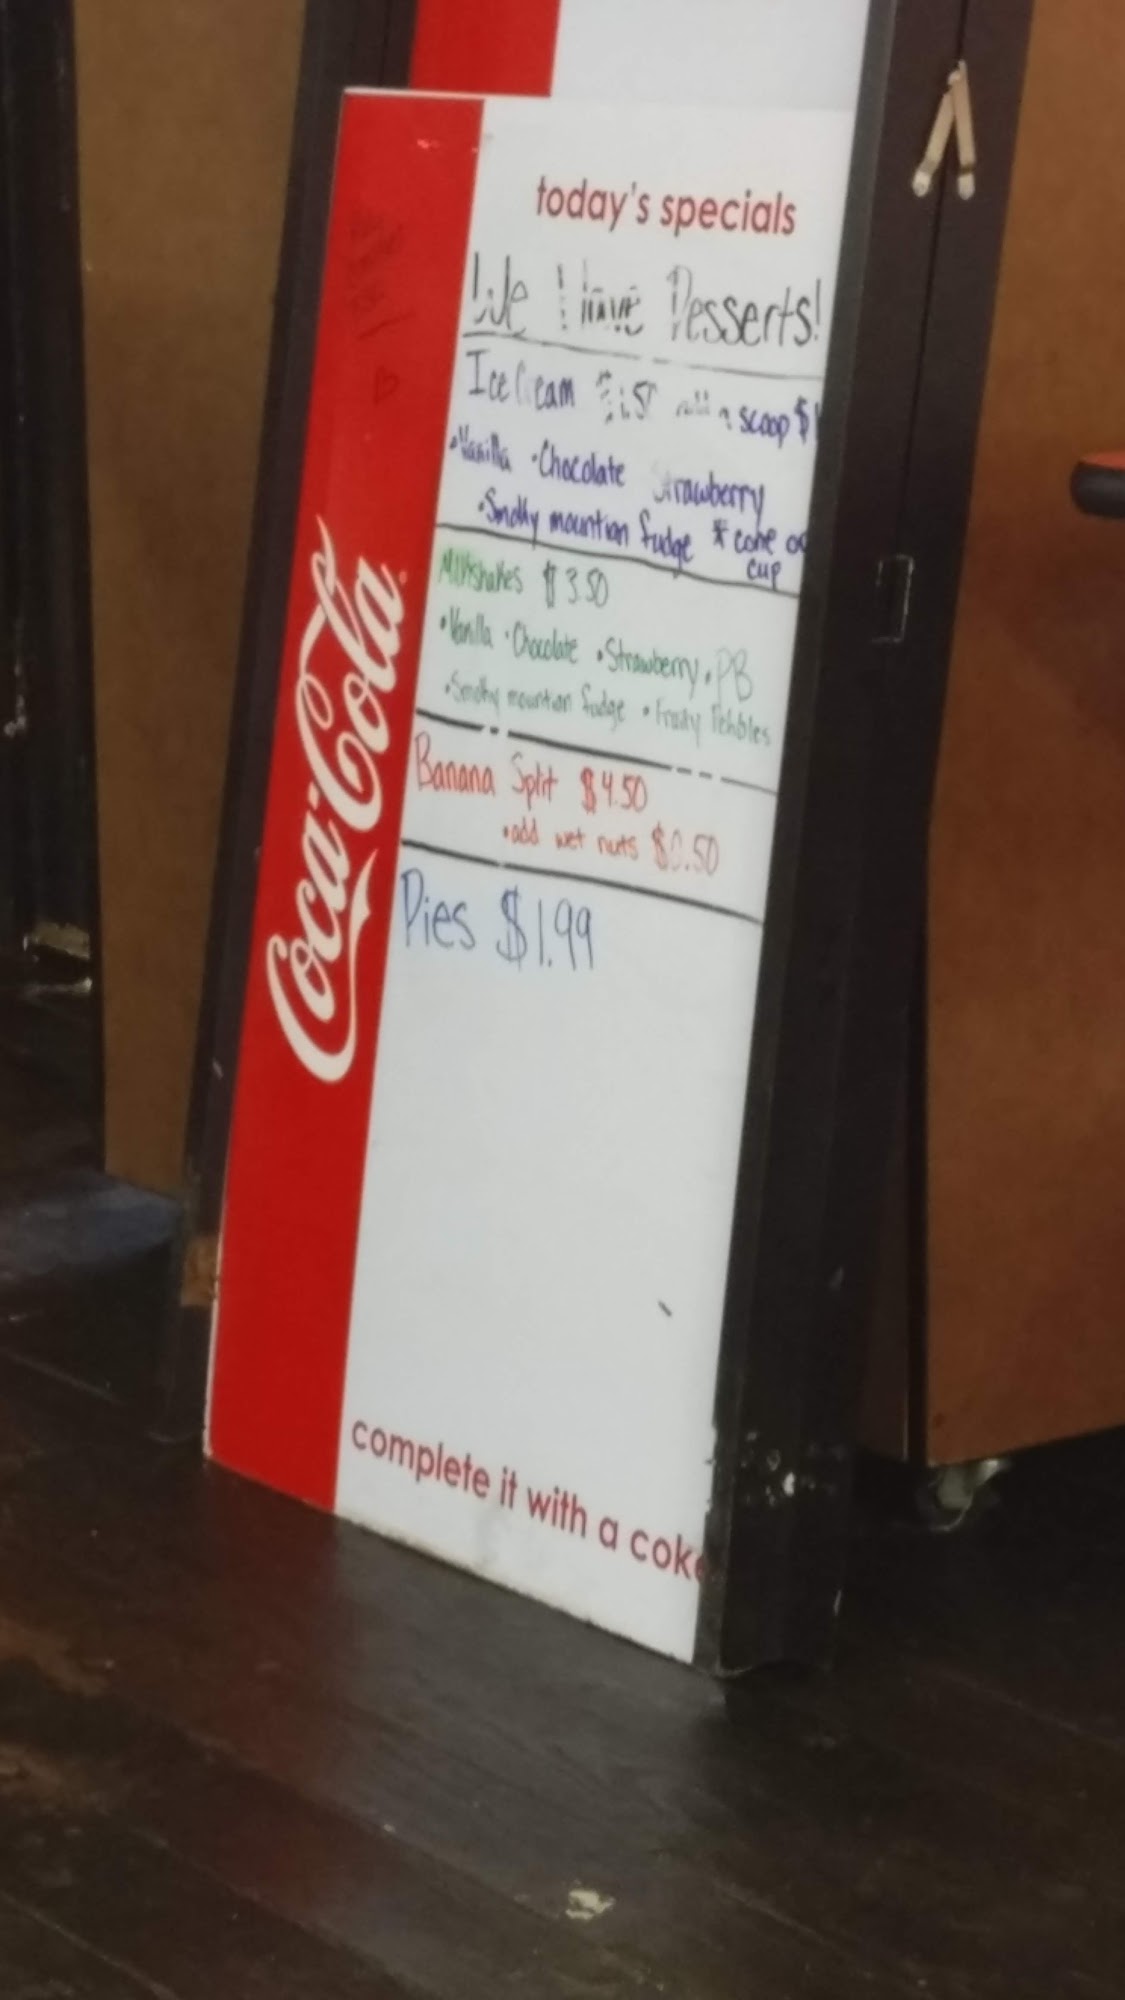 today's specials
We Have Desserts!
Ice Cream $1.50 add a scoop $1
•Vanilla •Chocolate Strawberry
•Smoky mountian fudge * cone or
cup
Milkshakes $3.50
•Vanilla •Chocolate •Strawberry •PB
•Smoky mountian fudge •Fruity Pebbles
Banana Split $4.50
•add wet nuts $0.50
Pies $1.99
Coca-Cola
complete it with a coke